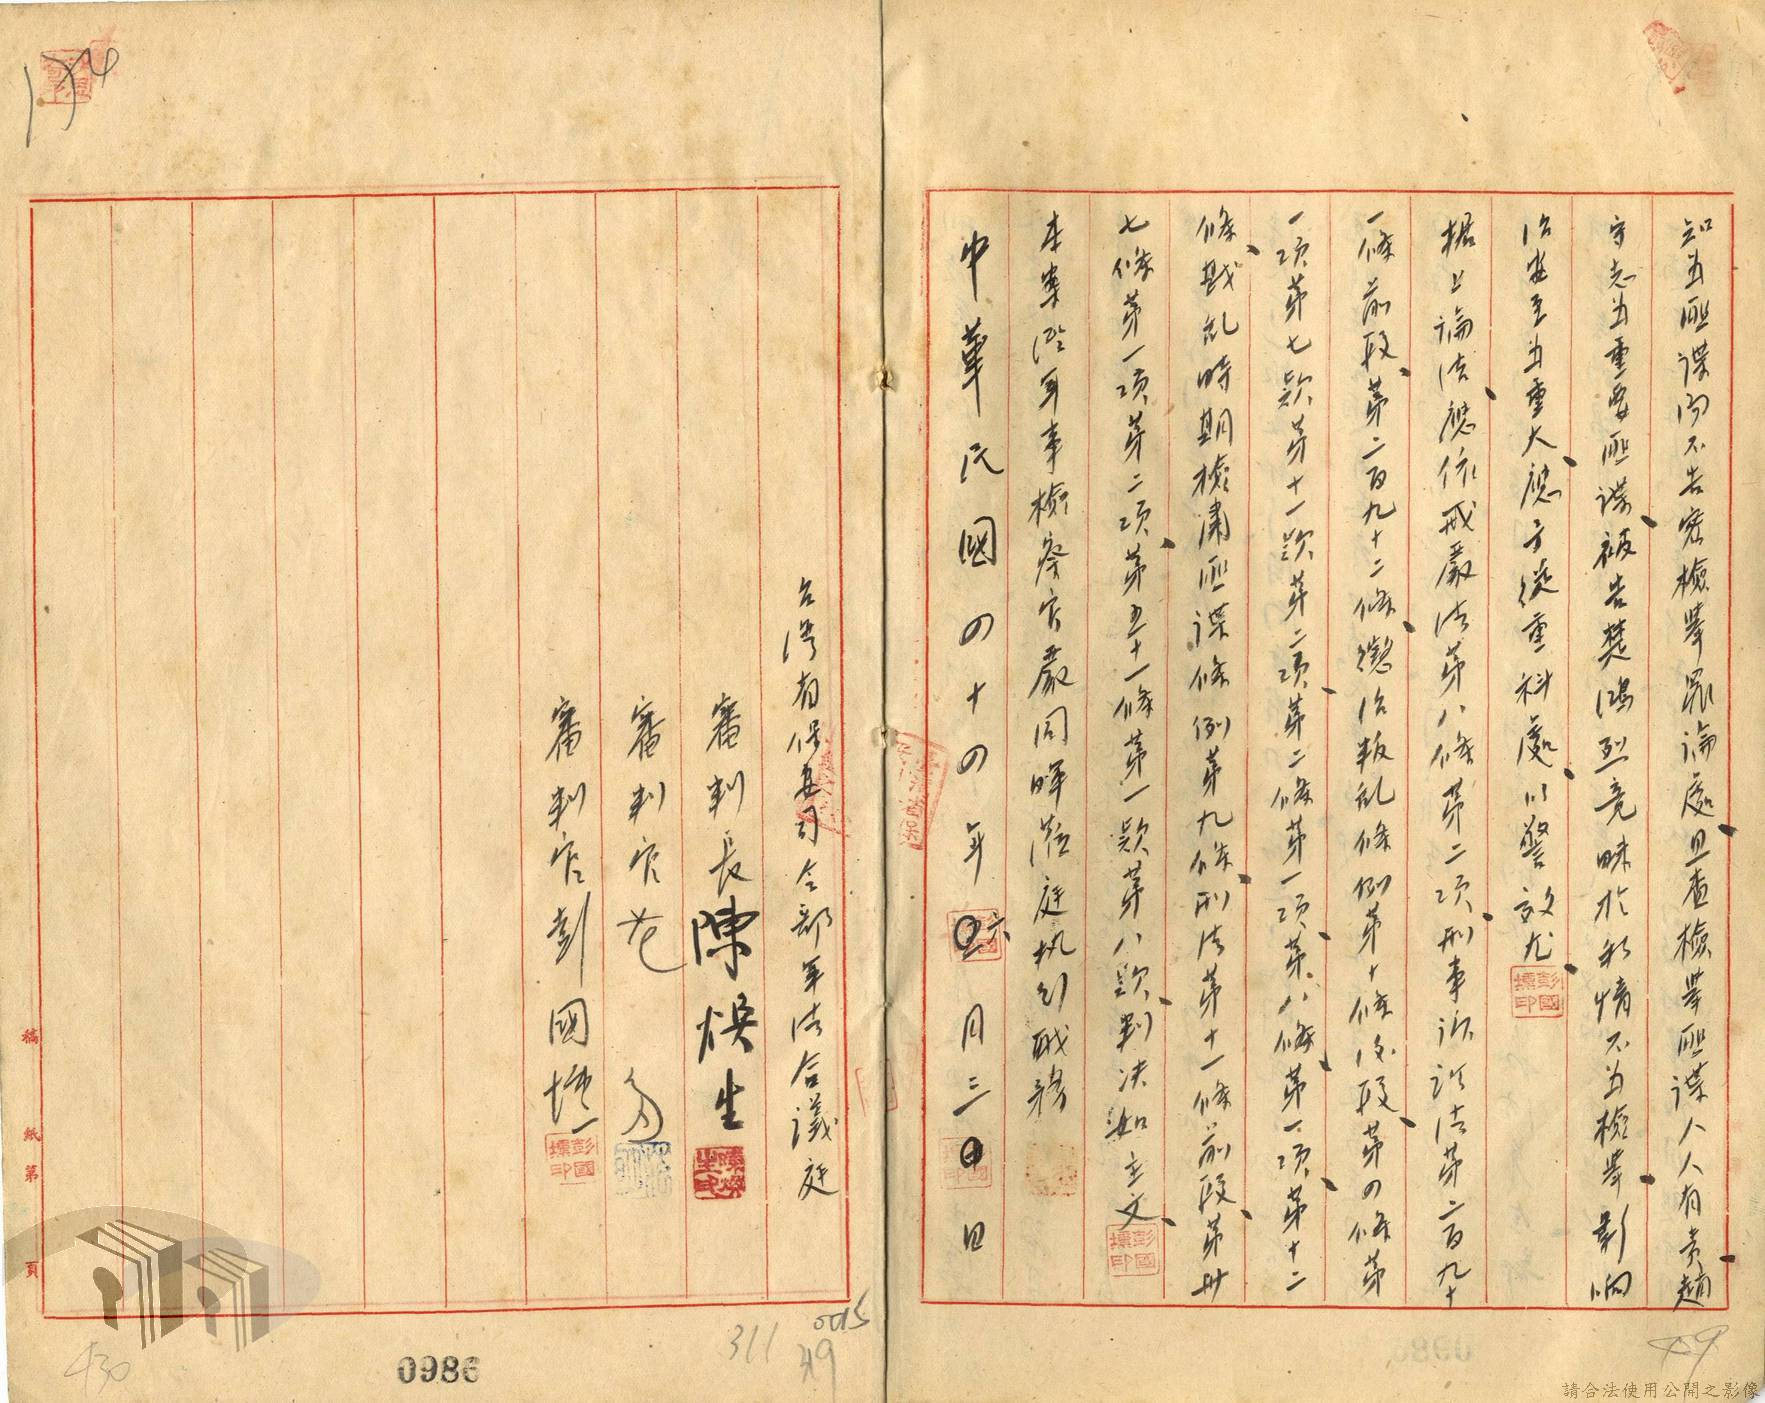 知為匪諜而不告密檢舉罪論處且查檢舉匪諜人人有責趙
守志為重要匪諜被告樊鴻烈竟昧於私情不為檢舉影响
治安至為重大應予從重科處以警效尤
據上論結應依戒嚴法第八條第二項刑事訴訟法第二百九十
一條前段第二百九十二條懲治叛乱條例第十條後段第四條第
一項第七款第十一款第二項第二條第一項第八條第一項第十二
條戡乱時期檢肅匪諜條例第九條刑法第十一條前段第卅
七條第一項第二項第五十一條第一款第八款判决如主文
本案經軍事檢察官嚴同暉蒞庭執行職務
中華民國四十四年六月三日
台灣省保安司令部軍法合議庭
審判長陳煥生
審判官范
審判官彭國壎
彭國壎印
陳煥生印
稿紙第 頁
0986
311
0015
49
430
請合法使用公開之影像